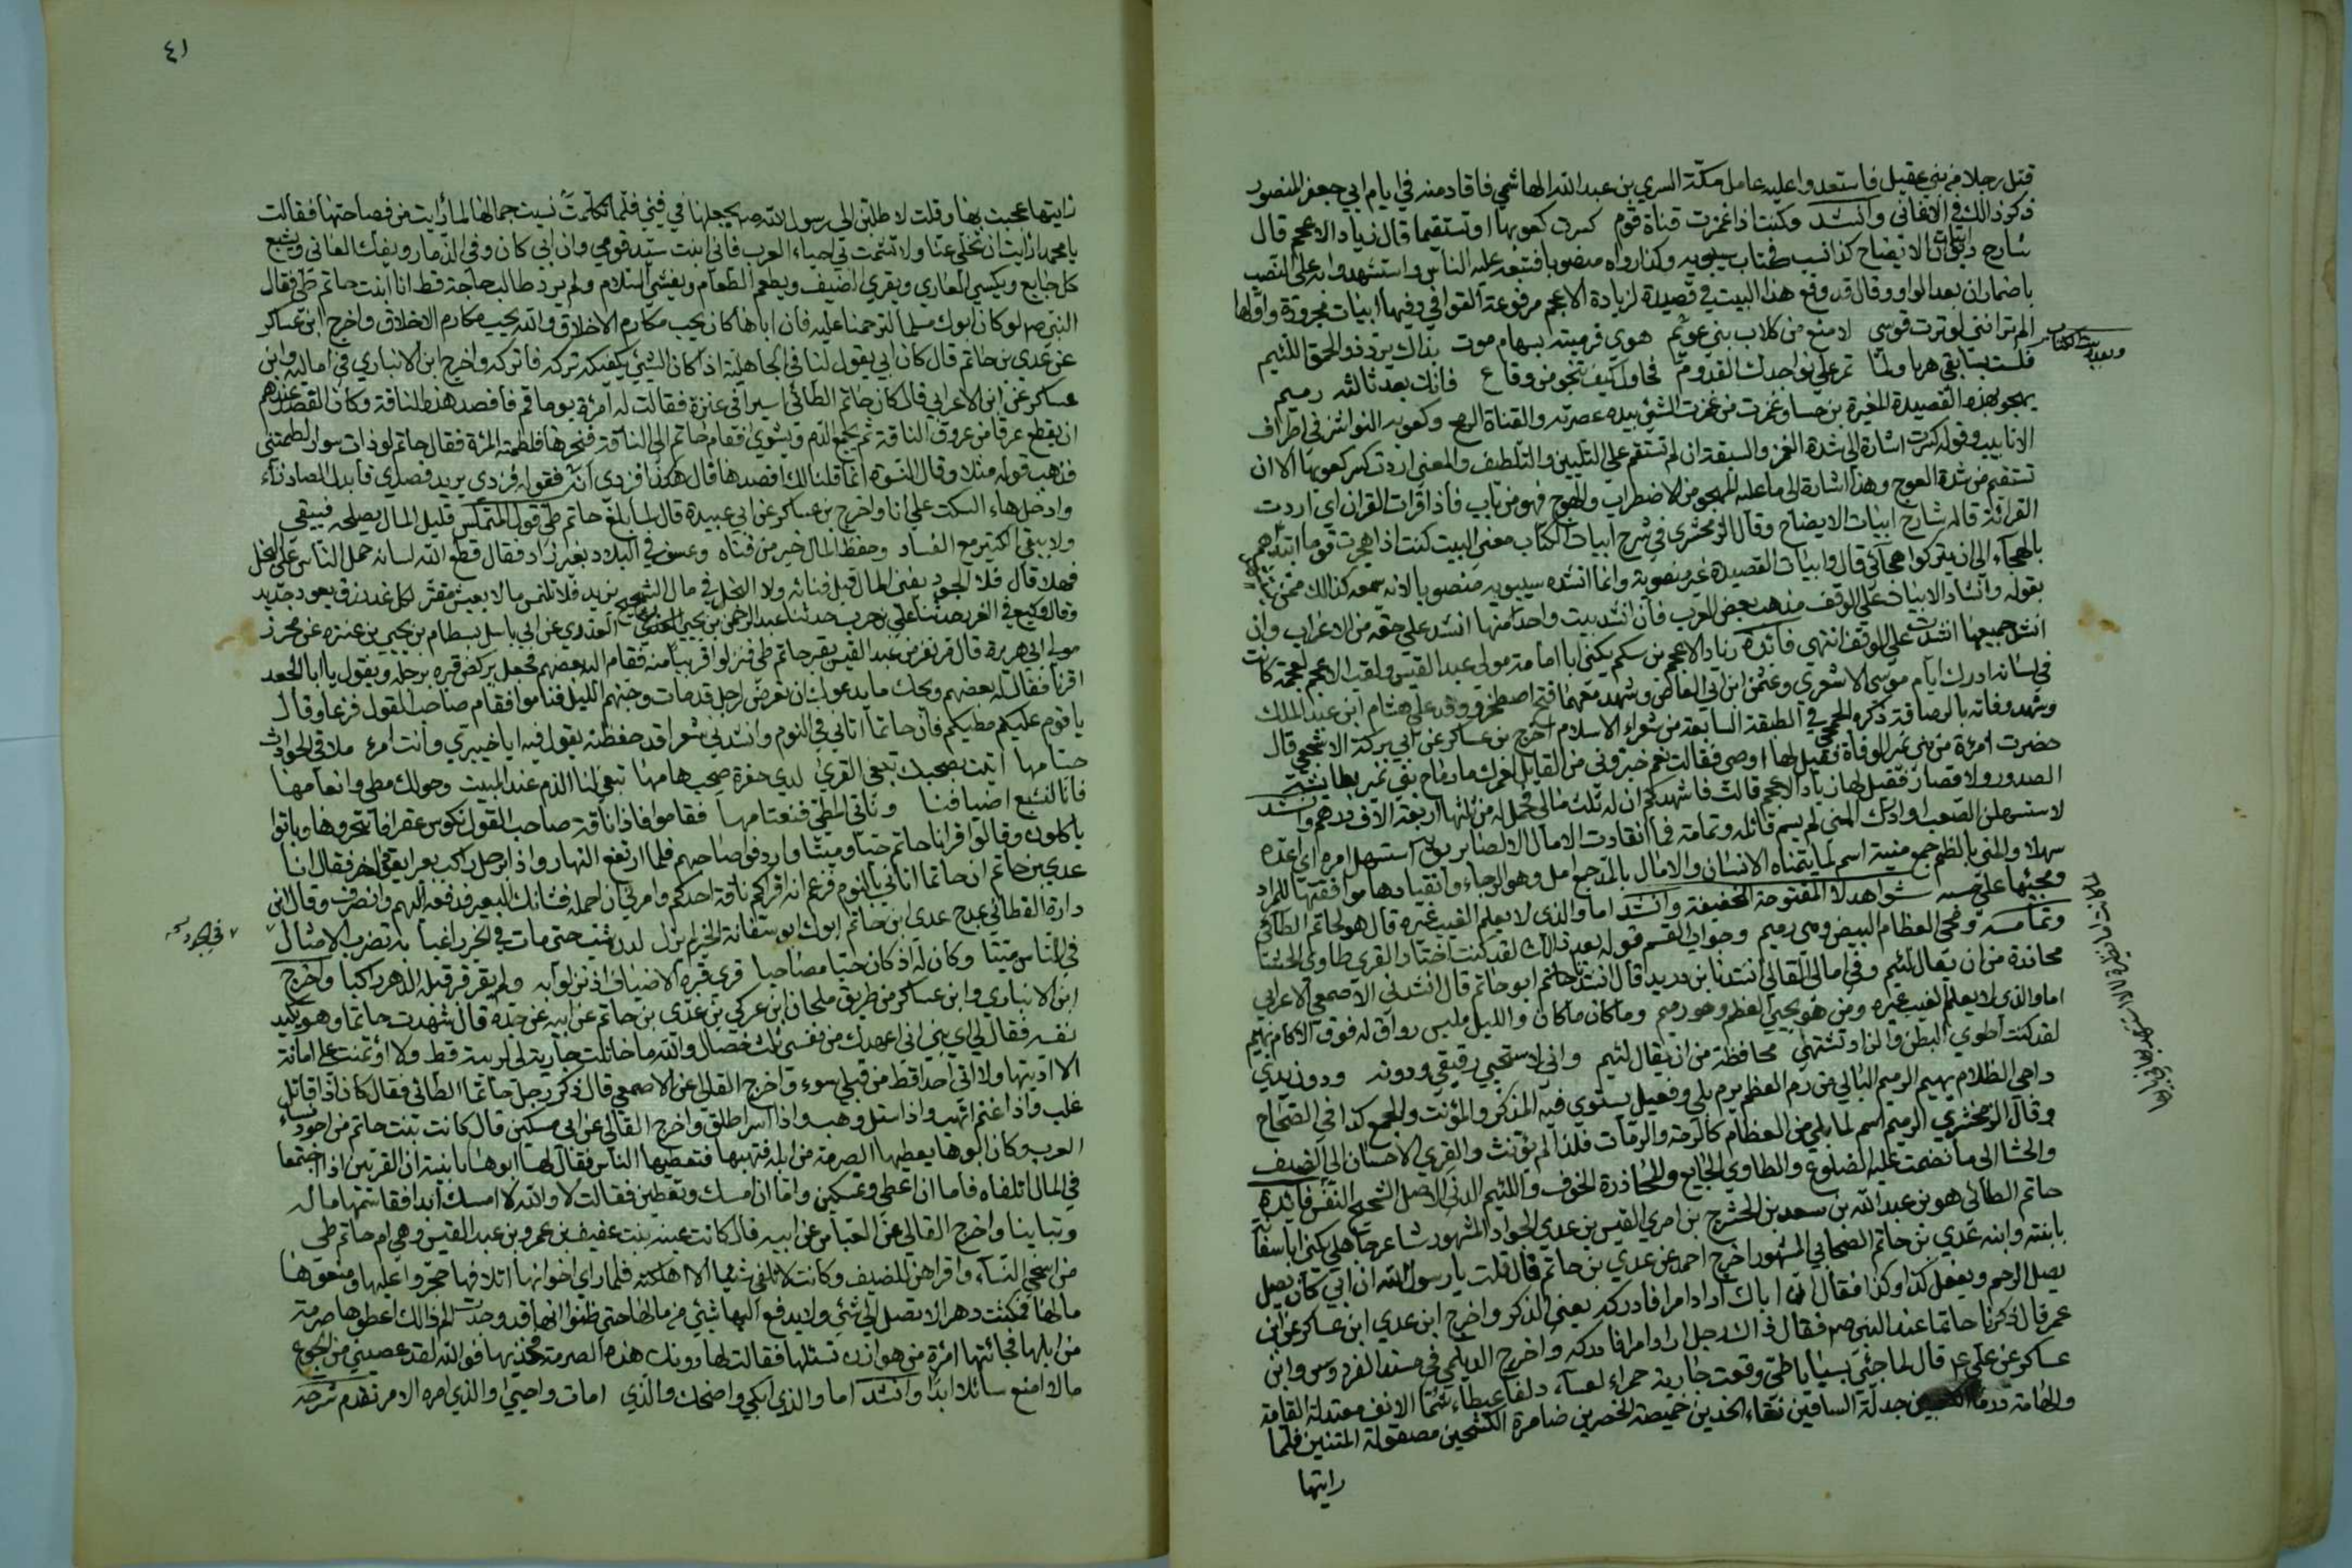 قتل رجلا من بني عقيل فاستعدوا عليه عامل مكة السري بن عبد الله الهاشمي فاقاد منه في ايام ابي جعفر المنصور
ذكر ذالك في الاغاني وانشد وكنت اذا غمزت قناة قوم كسرت كعوبها او تستقيما قال زياد الاعجم قال
شارح ابيات الايضاح كذا نسب في كتاب سيبويه وكذا رواه منصوبا فتبعه عليه الناس واستشهدوا به على النصب
باضمار ان بعد او وقال قد وقع هذا البيت في قصيدة لزيادة الاعجم مرفوعة القوافي وفيها ابيات مجرورة واولها
الم تر انني اوترت قوسي لامنع من كلاب بني تميم عوى فرميته بسهام موت بذاك يرد ذو الحمق اللئيم
وبعده بيت الكتاب
فلست بسابقي هربا ولما تمر على نواجذك القدوم فحاول كيف تنجو من وقاع فانك بعد ثالثة رميم
يهجو بهذه القصيدة المغيرة بن حبنا وغمزت من غمزت الشئ بيده عصرته والقناة الرمح وكعوبه النواشز في اطراف
الانابيب وقوله كسرت اشارة الى شدة الغمز والمعنى ان لم تستقم على التليين والتلطيف والمعنى اردت كسر كعوبها الا ان
تستقيم من شدة العوج وهذا اشارة الى ما عليه المهجو من الاضطراب والعوج فهو من باب فاذا قرات القران اي اردت
القرائة قاله شارح ابيات الايضاح وقال الزمخشري في شرح ابيات الكتاب معنى البيت كنت اذا هجوت قوما ابتدأهم
بالهجآء الى ان يتركوا هجائي قال وابيات القصيدة غير منصوبة وانما انشده سيبويه منصوبا لانه سمعه كذالك ممن
بقوله وانشاد الابيات على الوقف مذهب بعض العرب فان انشد بيت واحد منها انشد على حقه من الاعراب وان
انشد جميعها انشدت على الوقف انتهى فائدة زياد الاعجم بن سليم يكنى ابا امامة مولى عبد القيس ولقب الاعجم لعجمة كانت
في لسانه ادرك ايام موسى الاشعري وعثمن ابن ابي العاص وشهد معهما فتح اصطخر ووفد على هشام ابن عبد الملك
وشهد وفاته بالرصافة ذكره الجمحي في الطبقة السابعة من شعراء الاسلام اخرج بن عساكر عن ابي بركة الاشجعي قال
حضرت امرئة من بني نمير الوفاة فقيل لها اوصي فقالت نعم خبروني من القايل لعمرك ما رماح بني نمير بطايشة
الصدور ولا قصار فقيل لها زياد الاعجم قالت فاشهدكم ان له ثلث مالي فحمل له من ثلثها اربعة الاف درهم وانشد
لاستسهلن الصعب او ادرك المنى لم يسم قائله وتمامه فما انقادت الامال الا لصابر استسهل امره اي اعده
سهلا والمنى بالضم جمع منية اسم لما يتمناه الانسان والامال بالمد جمع امل وهو الرجاء وانقيادها موافقتها للمراد
ومجيئها على حسبه شواهد لا المفتوحة الخفيفة وانشد اما والذي لا يعلم الغيب غيره قال هو لحاتم الطائي
وتمامه ويحي العظام البيض وهي رميم وجواب القسم قوله بعد ذالك لقد كنت اختار القرى طاوي الحشا
محاذرة من ان يقال لئيم وفي امالي القالي انشدنا بن دريد قال انشدنا ابو حاتم قال انشدني الاصمعي لاعرابي
اما والذي لا يعلم الغيب غيره ومن هو يحيي العظم وهو رميم وما كان ما كان والليل ملبس رواق له فوق الاكام بهيم
لقد كنت اطوي البطن والزاد تشتهى محافظة من ان يقال لئيم واني لاستحيي رفيقي ودونه ودون يدي
داجي الظلام بهيم الرميم البالي من رم العظم يرم بلي وفعيل يستوي فيه المذكر والمؤنث والجمع كذا في الصحاح
وقال الزمخشري الرميم اسم لما بلي من العظام كالرمة والرمات فلذا لم يؤنث والقرى الاحسان الى الضيف
والحشا الى ما نضمت عليه الضلوع والطاوي الجايع والمحاذرة الخوف واللئيم الدني الاصل الشحيح النفس فائدة
حاتم الطائي هو بن عبد الله بن سعد بن الحشرج بن امرئ القيس بن عدي الجواد المشهور شاعر جاهلي يكنى ابا سفانة
بابنته وابنه عدي بن حاتم الصحابي المشهور اخرج احمد عن عدي بن حاتم قال قلت يا رسول الله ان ابي كان يصل
يصل الرحم ويفعل كذا وكذا فقال ان اباك اراد امرا فادركه يعني الذكر واخرج ابن عدي ابن عساكر عن ابن
عمر قال ذكرنا حاتما عند النبي صم فقال ذاك رجل اراد امرا فادركه واخرج الديلمي في مسند الفردوس وابن
عساكر عن علي عم قال لما جئي بسبايا طي وقعت جارية حمراء لعسآء دلفا عيطاء شما الانف معتدلة القامة
والهامة درما الكعبين جدلة الساقين نقاء الخدين خميصة الخصرين ضامرة الكشحين مصقولة المتنين فلما
رايتها
٤١
رايتها عجبت بها وقلت لاطلبن الى رسول الله صم يجعلها في فيئي فلما تكلمت نسيت جمالها لما رايت من فصاحتها فقالت
يا محمد ارايت ان تخلي عنا ولا تشمت بي احياء العرب فاني ابنت سيد قومي وان ابي كان وفي الذمار ويفك العاني ويشبع
كل جايع ويكسي العاري ويقري الضيف ويطعم الطعام ويفشي السلام ولم يرد طالب حاجة قط انا ابنت حاتم طي فقال
النبي صم لو كان ابوك مسلما لترحمنا عليه فان اباها كان يحب مكارم الاخلاق والله يحب مكارم الاخلاق واخرج ابن عساكر
عن عدي بن حاتم قال كان ابي يقول لنا في الجاهلية اذا كان الشئ يكفيكه تركه فاتركه واخرج ابن الانباري في اماليه وابن
عساكر عن ابن الاعرابي قال كان حاتم الطائي اسيرا في عنزة فقالت له امرئة يوما قم فافصد هذه الناقة وكان الفصد عندهم
ان يقطع عرقا من عروق الناقة ثم يجمع الدم ويشوى فقام حاتم الى الناقة فنحرها فلطمته المرئة فقال حاتم لو ذات سوار لطمتني
فذهب قوله مثلا وقال النسوة انما قلنا لك افصدها قال هكذا فزدي انه فقوله فزدي يريد فصدي فابدل الصاد زاء
وادخل هاء السكت على انا واخرج بن عساكر عن ابي عبيدة قال لما بلغ حاتم طي قول المتلمس قليل المال يصلحه فيبقى
ولا يبقى الكثير مع الفساد وحفظ المال خير من فناه وعسف في البلاد بغير زاد فقال قطع الله لسانه حمل الناس على البخل
فهلا قال فلا الجود يفني المال قبل فنائه ولا البخل في مال الشحيح يزيد فلا تلتمس مالا بعيش مقتر لكل غد رزق يعود جديد
وقال وكيع في الغرر حدثنا علي بن حرب حدثنا عبد الرحمن بن يحيى العذري عن ابي باسل بسطام بن يحيى بن عنزة عن محرز
مولى ابي هريرة قال مر نفر من عبد القيس بقبر حاتم طي فنزلوا قريبا منه فقام اليه بعضهم فجعل يركض قبره برجله ويقول يا ابا الجعد
اقرنا فقال له بعضهم ويحك ما يدعوك ان تعرض لرجل قد مات وجنهم الليل فناموا فقام صاحب القول فزعا وقال
يا قوم عليكم مطيكم فان حاتما اتاني في النوم وانشدني شعرا قد حفظته يقول فيه ايا خيبري وانت امرء ملاقي الحوادث
حسامها اتيت بصحبك تبغي القرى لدى حفرة صحب هامها تبغي لنا الذم عند المبيت وحولك طي وانعامها
فانا لنشبع اضيافنا وناتي المطي فنعتامها فقاموا فاذا ناقة صاحب القول تكوس عقرا فانتحروها وباتوا
ياكلون وقالوا قرانا حاتم حيا وميتا واردفوا صاحبهم فلما ارتفع النهار واذا برجل راكب بعيرا يقود اخر فقال انا
عدي بن حاتم ان حاتما اتاني بالنوم فزعم انه اقراكم ناقة احدكم وامرني ان احمله فشانك البعير فدفعه اليهم وانصرف وقال ابن
دارة القطاني يمدح عدى ابن حاتم ابوك ابو سفانة الخير لم يزل لدن شب حتى مات في الخير راغبا به تضرب الامثال
في الناس ميتا وكان له اذ كان حيا مصاحبا قرى قبره الاضياف اذ نزلوا به ولم يقر قبر قبله الدهر راكبا واخرج
ابن الانباري وابن عساكر من طريق ملحان ابن عركي بن عدي بن حاتم عن ابيه عن جده قال شهدت حاتما وهو يكيد
نفسه فقال لي اي بني اني اعهدك من نفسي ثلث خصال والله ما خاتلت جارية لي لريبة قط ولا اؤتمنت على امانة
الا اديتها ولا اتى احد اقط من قبلي سوء واخرج القالي عن الاصمعي قال ذكر رجل حاتما الطائي فقال كان اذا قاتل
غلب واذا غنم انهب واذا سئل وهب واذا اسر اطلق واخرج القالي عن ابن مسكين قال كانت بنت حاتم من اجود نساء
العرب وكان ابوها يعطيها الصرمة من ابله فتهبها فتعطيها الناس فقال لها ابوها يا بنية ان القرينين اذا اجتمعا
في المال اتلفاه فاما ان اعطي وتمسكين واما ان امسك وتعطين فقالت لا والله لا امسك ابدا فقاسمها ماله
وتباينا واخرج القالي عن العباس عن ابيه قال كانت عنبة بنت عفيف بن عمرو بن عبد القيس وهي ام حاتم طي
من اسخى النساء واقراهن للضيف وكانت لا تلفي شيئا الا اهلكته فلما راى اخوانها اتلافها حجروا عليها ومنعوها
مالها فمكثت دهرا لا تصل الى شئ ولا يدفع اليها شئي من مالها حتى ظنوا انها قد وجدت الم ذالك اعطوها صرمة
من ابلها فجائتها امرئة من هوازن تسئلها فقالت لها دونك هذه الصرمة فخذيها فوالله لقد عضني من الجوع
مالا امنع سائلا ابدا وانشد اما والذي ابكى واضحك والذي امات واحيى والذي امره الامر تقدم شرحه